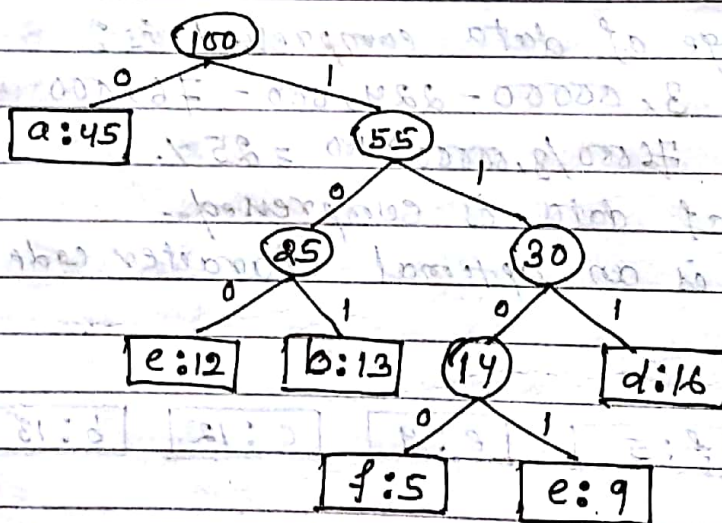 100
0 1
a:45 55
0 1
25 30
0 1 0 1
e:12 b:13 14 d:16
0 1
f:5 e:9